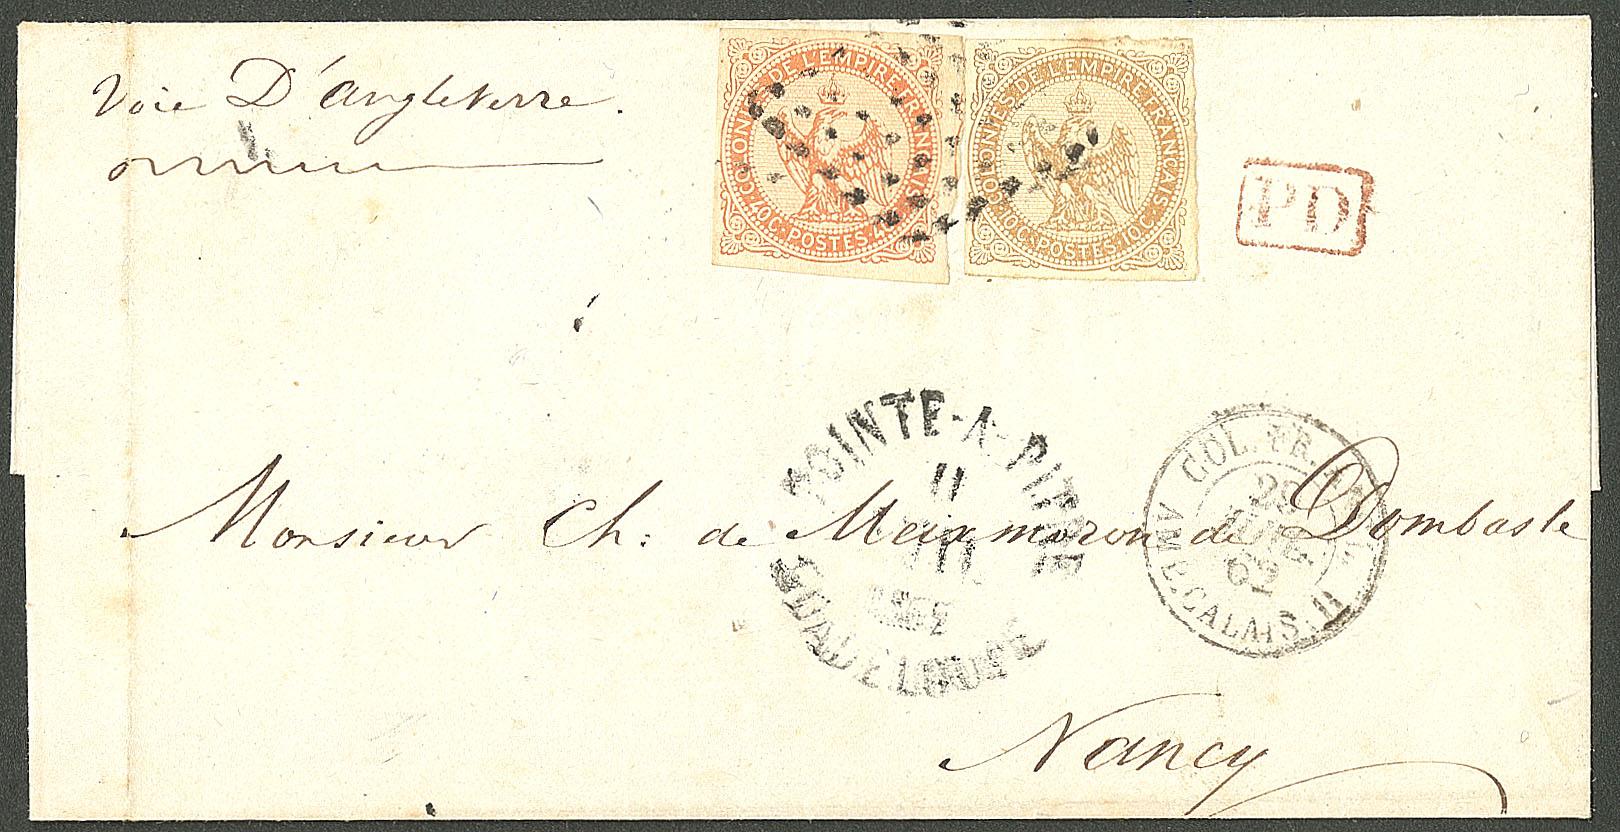 Voie D'angleterre.
COLONIES DE L'EMPIRE FRANÇAIS
40C. POSTES.
COLONIES DE L'EMPIRE FRANÇAIS
10C. POSTES. 10C.
PD
POINTE-A-PITRE
11
GUADELOUPE
COL. FR.
29
AMB. CALAIS. B
Monsieur Ch: de Meixmoron de Dombasle
Nancy